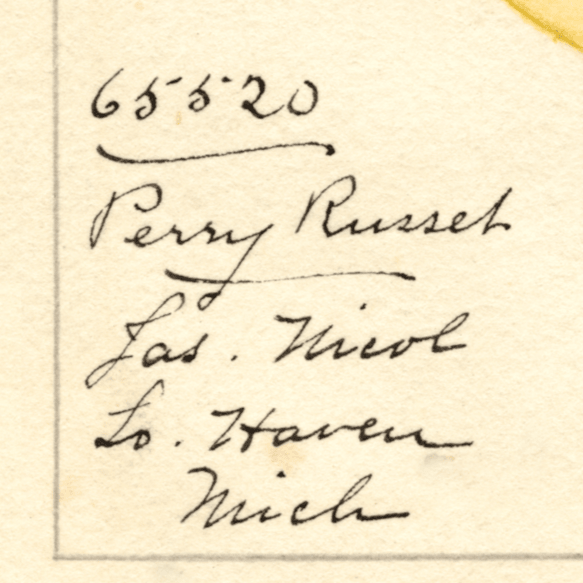 65520
Perry Russet
Jas. Nicol
So. Haven
Mich